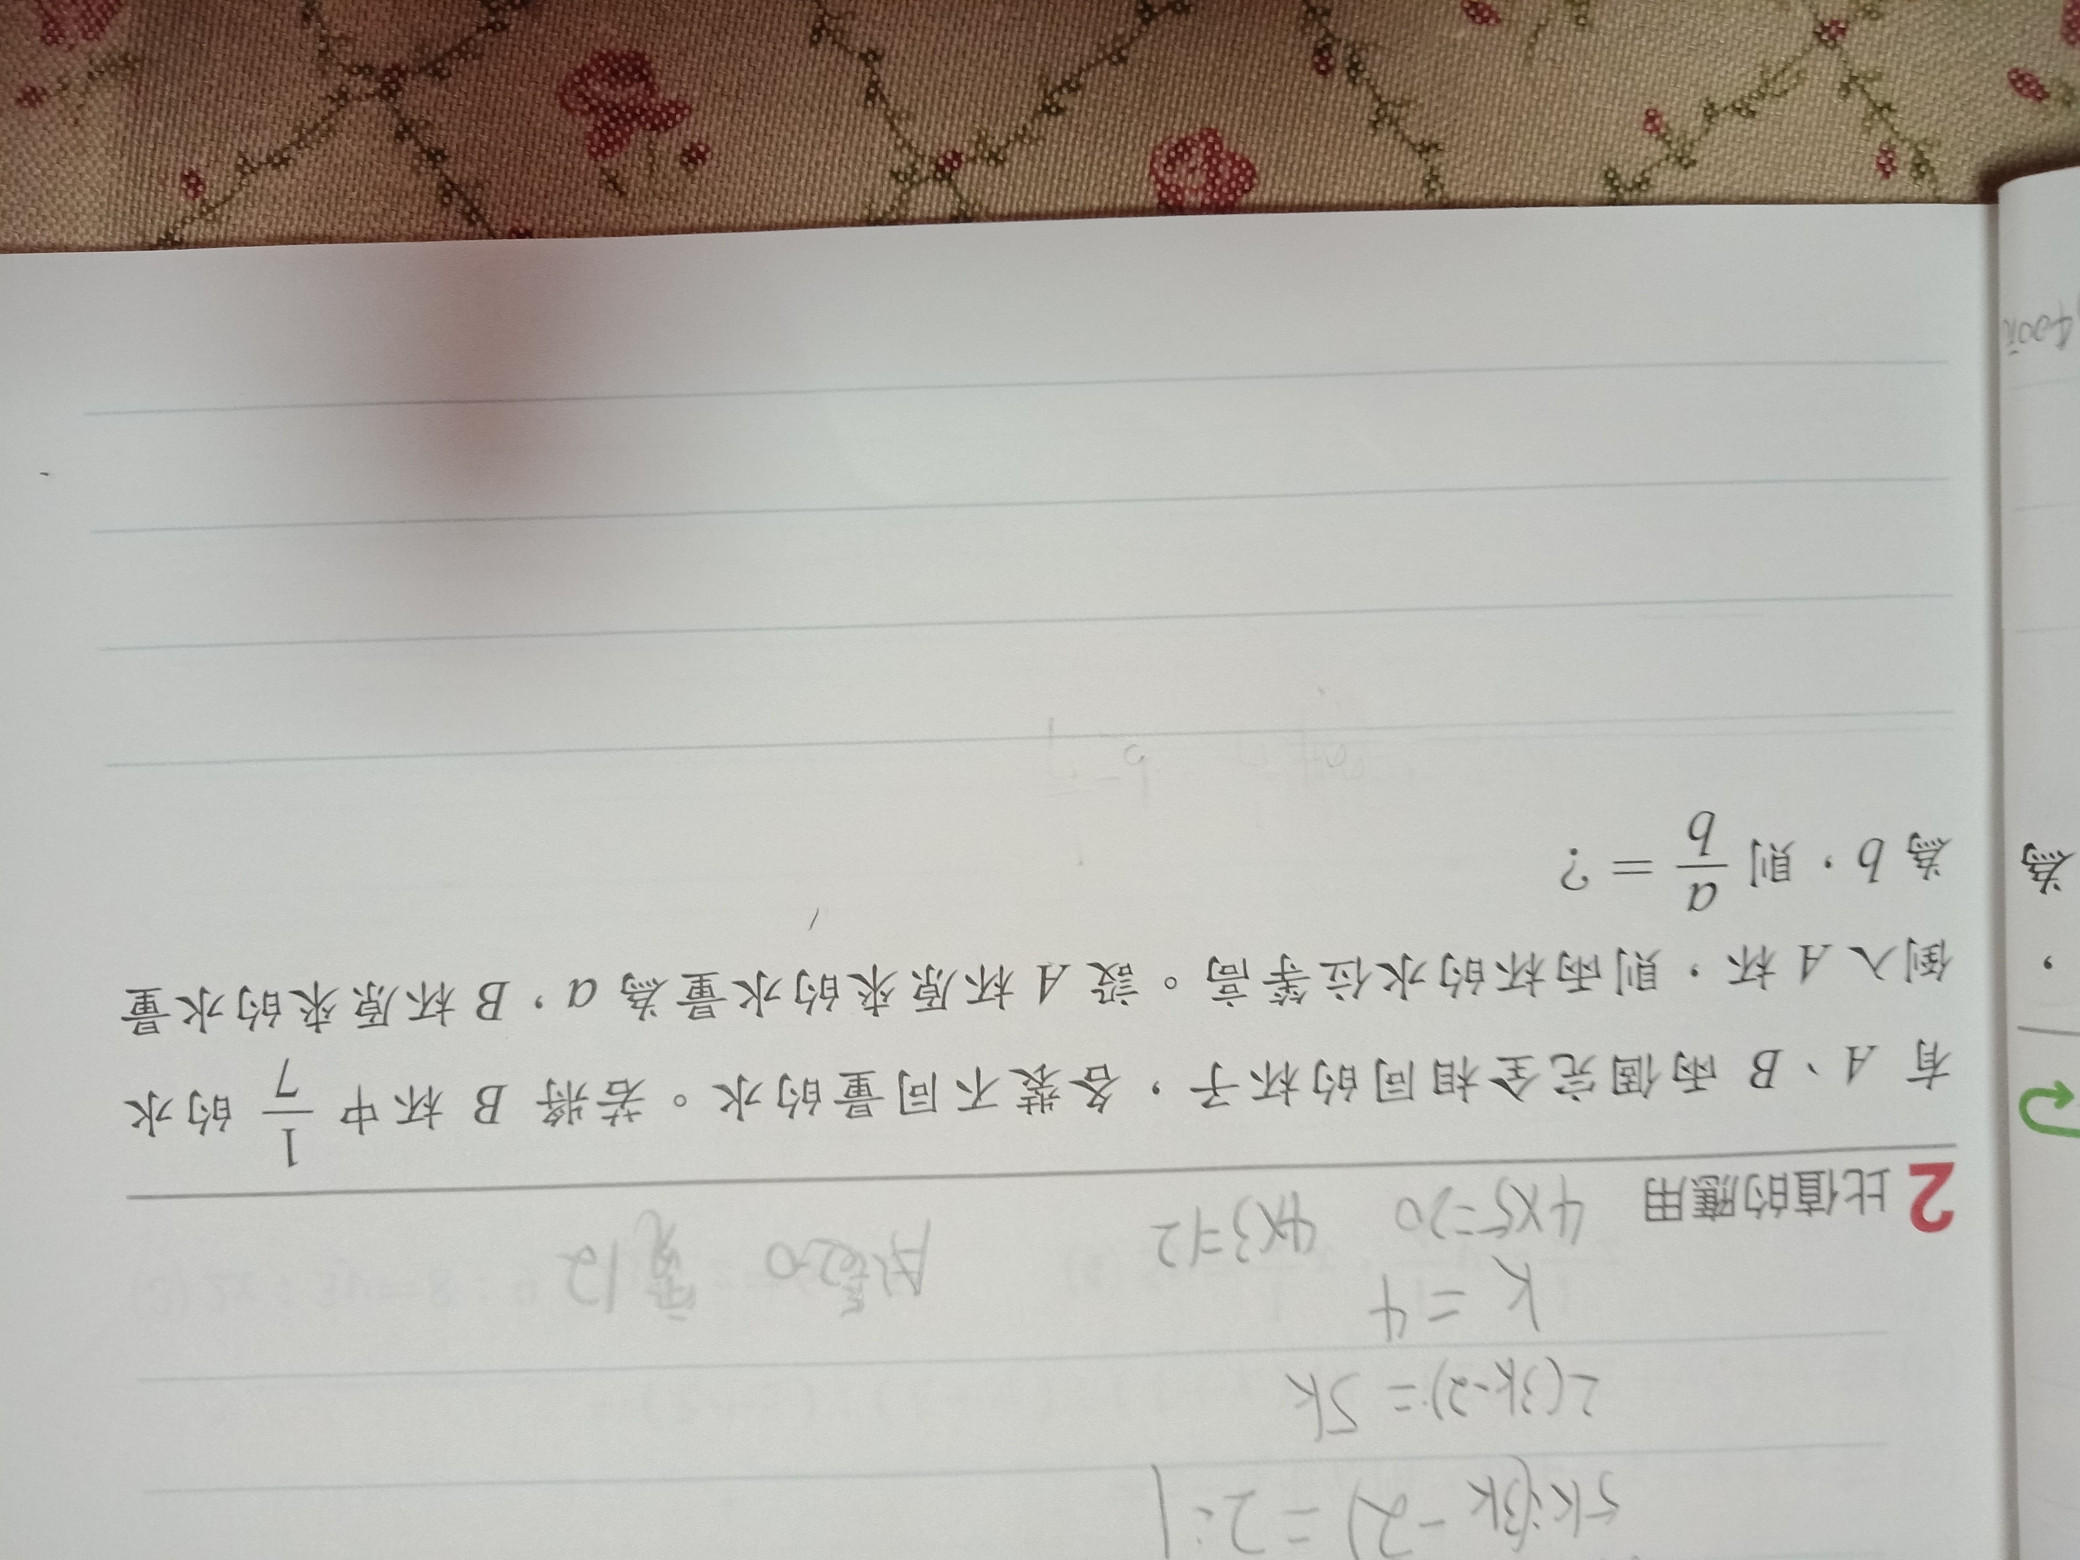 5k:(3k-2)=2:1
2(3k-2)=5k
k=4
4x5=20 4x3=12 長20 寬12
2 比值的應用
有 A、B 兩個完全相同的杯子，各裝不同量的水。若將 B 杯中 1/7 的水
倒入 A 杯，則兩杯的水位等高。設 A 杯原來的水量為 a，B 杯原來的水量
為 b，則 a/b = ?
，
為